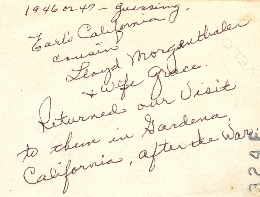 1946 or 47 - guessing.
Earl's California
cousin
Lloyd Morganthaler
+ Wife Grace.
Returned our Visit
to them in Gardena,
California, after the War.